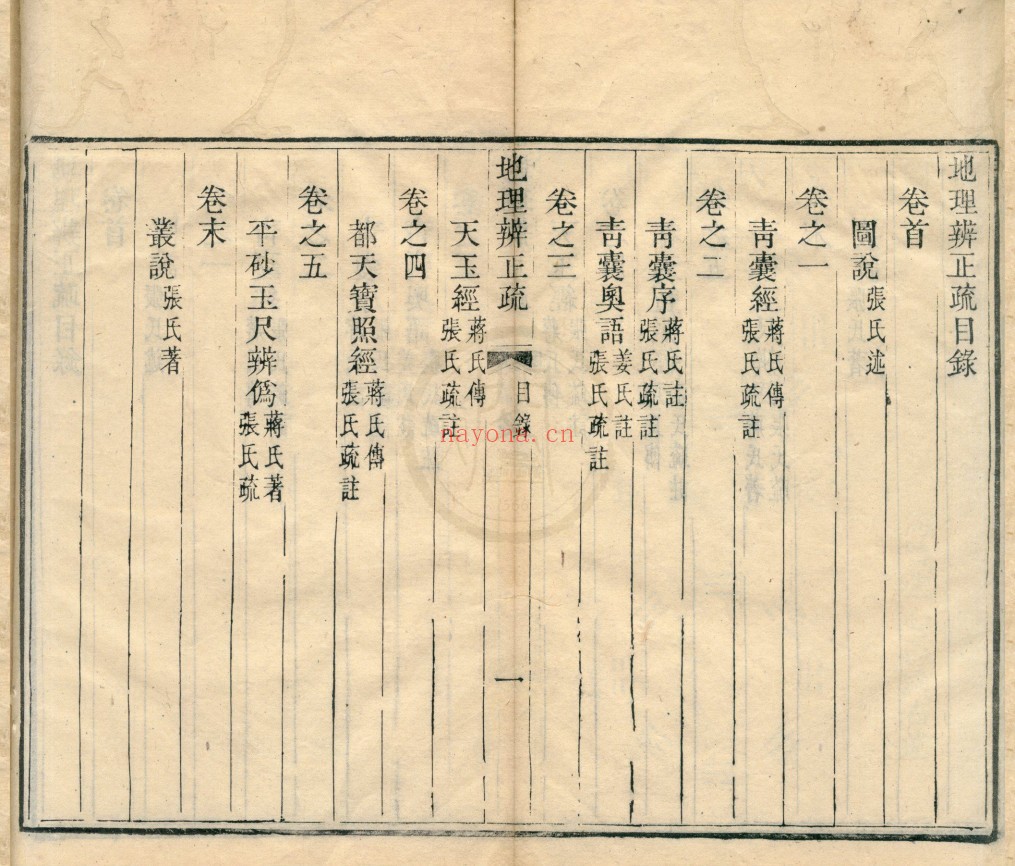 地理辨正疏目錄
卷首
圖說張氏述
卷之一
青囊經蔣氏傳
張氏疏註
卷之二
青囊序蔣氏註
張氏疏註
青囊奧語姜氏註
張氏疏註
卷之三
地理辨正疏 目錄 一
天玉經蔣氏傳
張氏疏註
卷之四
都天寶照經蔣氏傳
張氏疏註
卷之五
平砂玉尺辨偽蔣氏著
張氏疏
卷末
叢說張氏著
nayona.cn